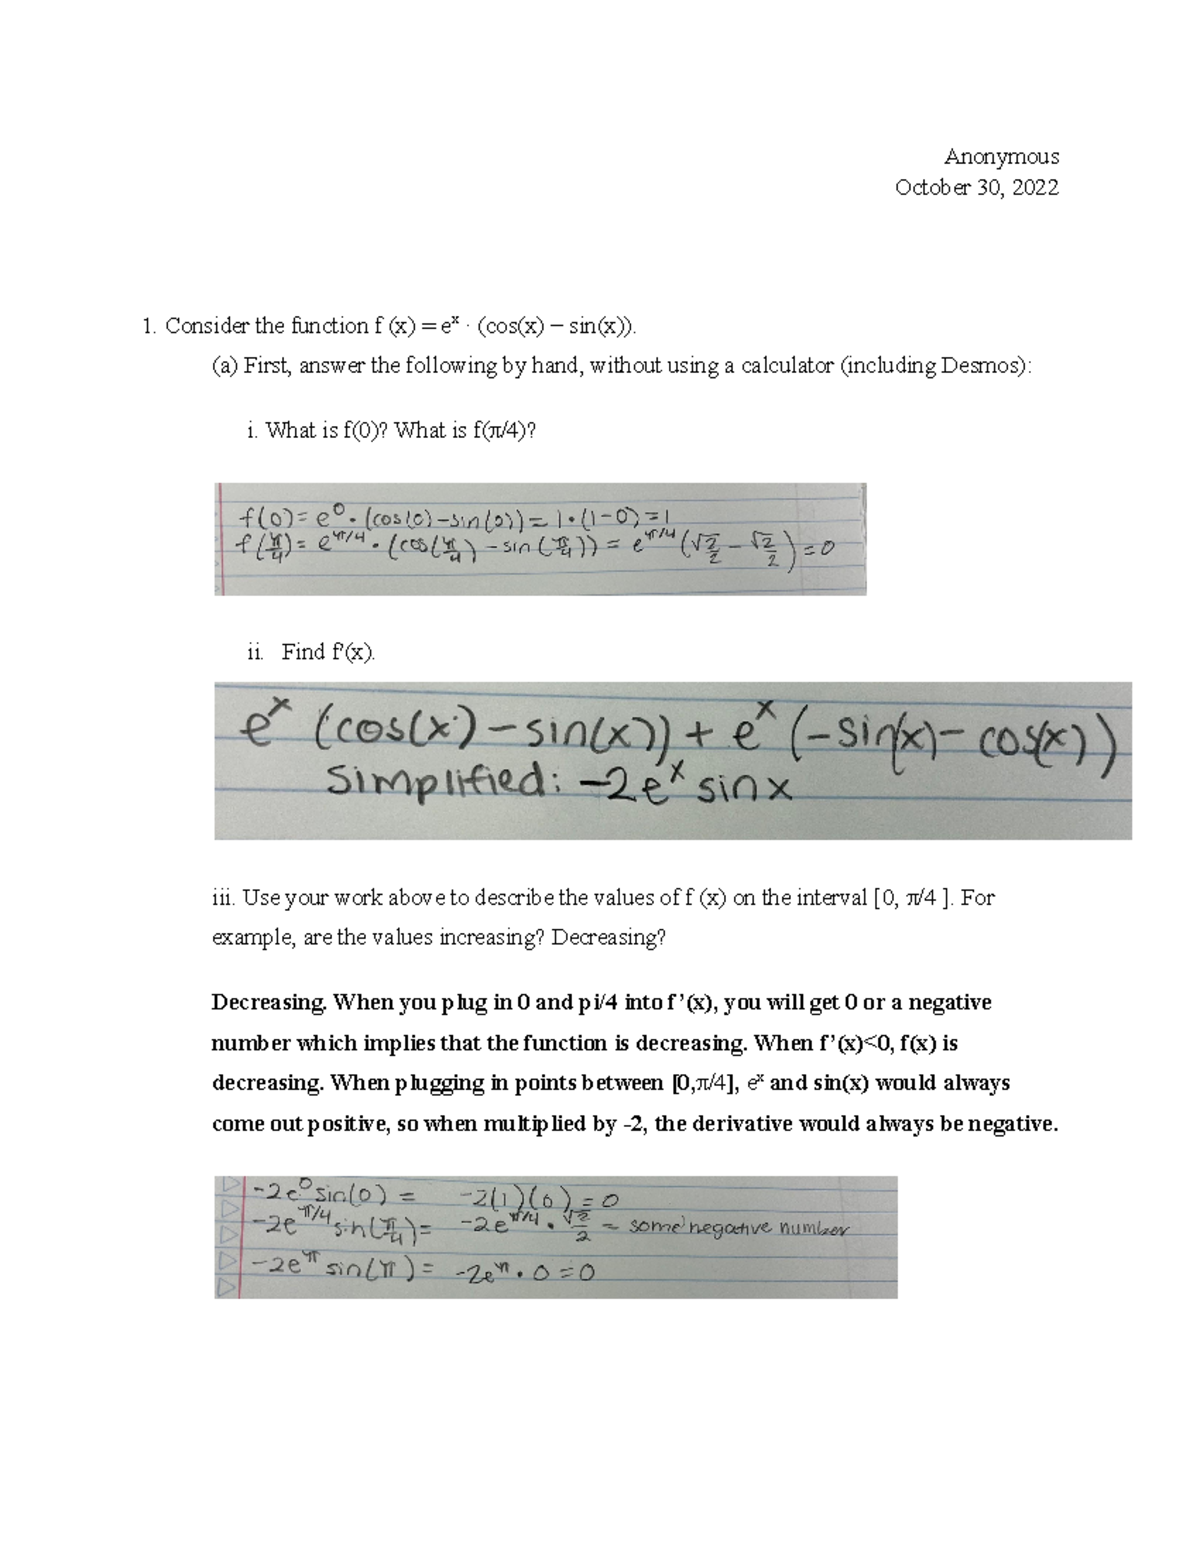 Anonymous
October 30, 2022
1. Consider the function f (x) = eˣ · (cos(x) − sin(x)).
(a) First, answer the following by hand, without using a calculator (including Desmos):
i. What is f(0)? What is f(π/4)?
f(0) = e⁰ · (cos(0) - sin(0)) = 1 · (1-0) = 1
f(π/4) = e^π/4 · (cos(π/4) - sin(π/4)) = e^π/4 (√2/2 - √2/2) = 0
ii. Find f'(x).
eˣ (cos(x) - sin(x)) + eˣ (-sin(x) - cos(x))
Simplified: -2eˣ sinx
iii. Use your work above to describe the values of f (x) on the interval [0, π/4 ]. For
example, are the values increasing? Decreasing?
Decreasing. When you plug in 0 and pi/4 into f’(x), you will get 0 or a negative
number which implies that the function is decreasing. When f’(x)<0, f(x) is
decreasing. When plugging in points between [0,π/4], eˣ and sin(x) would always
come out positive, so when multiplied by -2, the derivative would always be negative.
-2e⁰ sin(0) = -2(1)(0) = 0
-2e^π/4 sin(π/4) = -2e^π/4 · √2/2 = some negative number
-2e^π sin(π) = -2e^π · 0 = 0